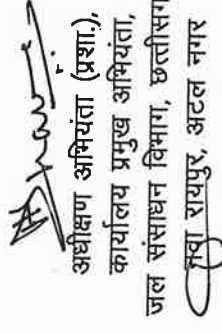 अधीक्षण अभियंता (प्रशा.),
कार्यालय प्रमुख अभियंता,
जल संसाधन विभाग, छत्तीसग
नवा रायपुर, अटल नगर